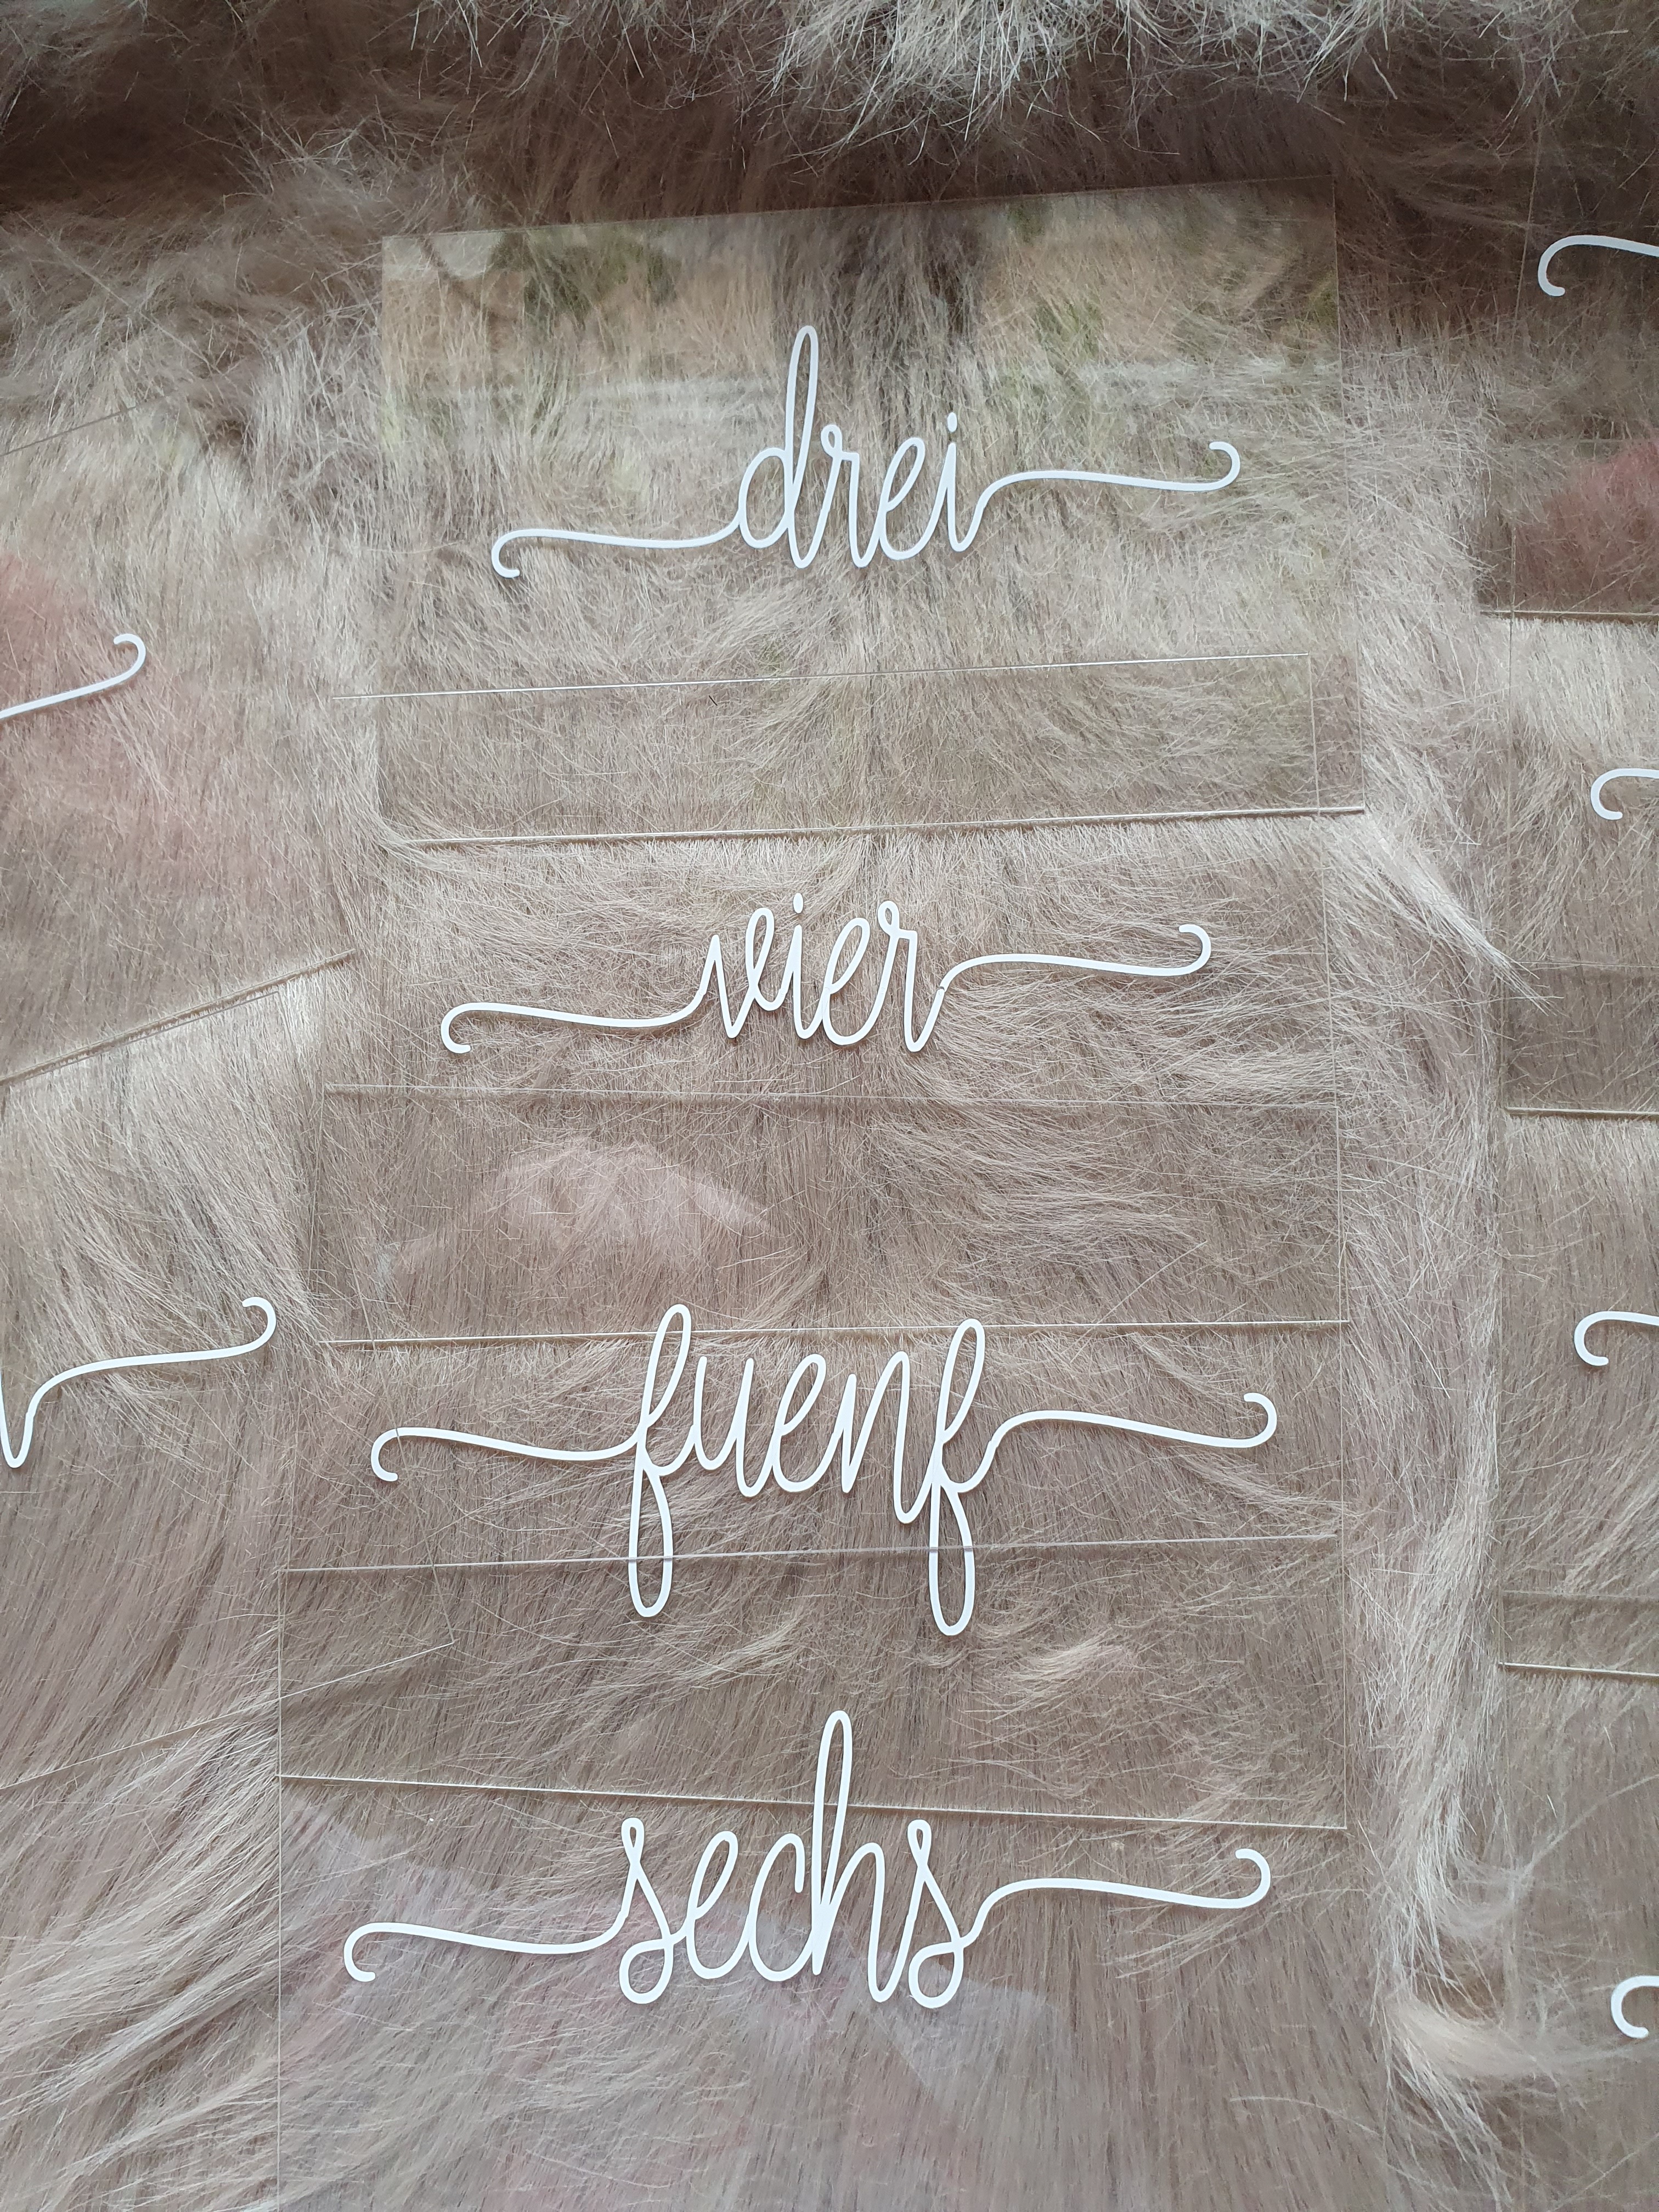 drei
vier
fuenf
sechs